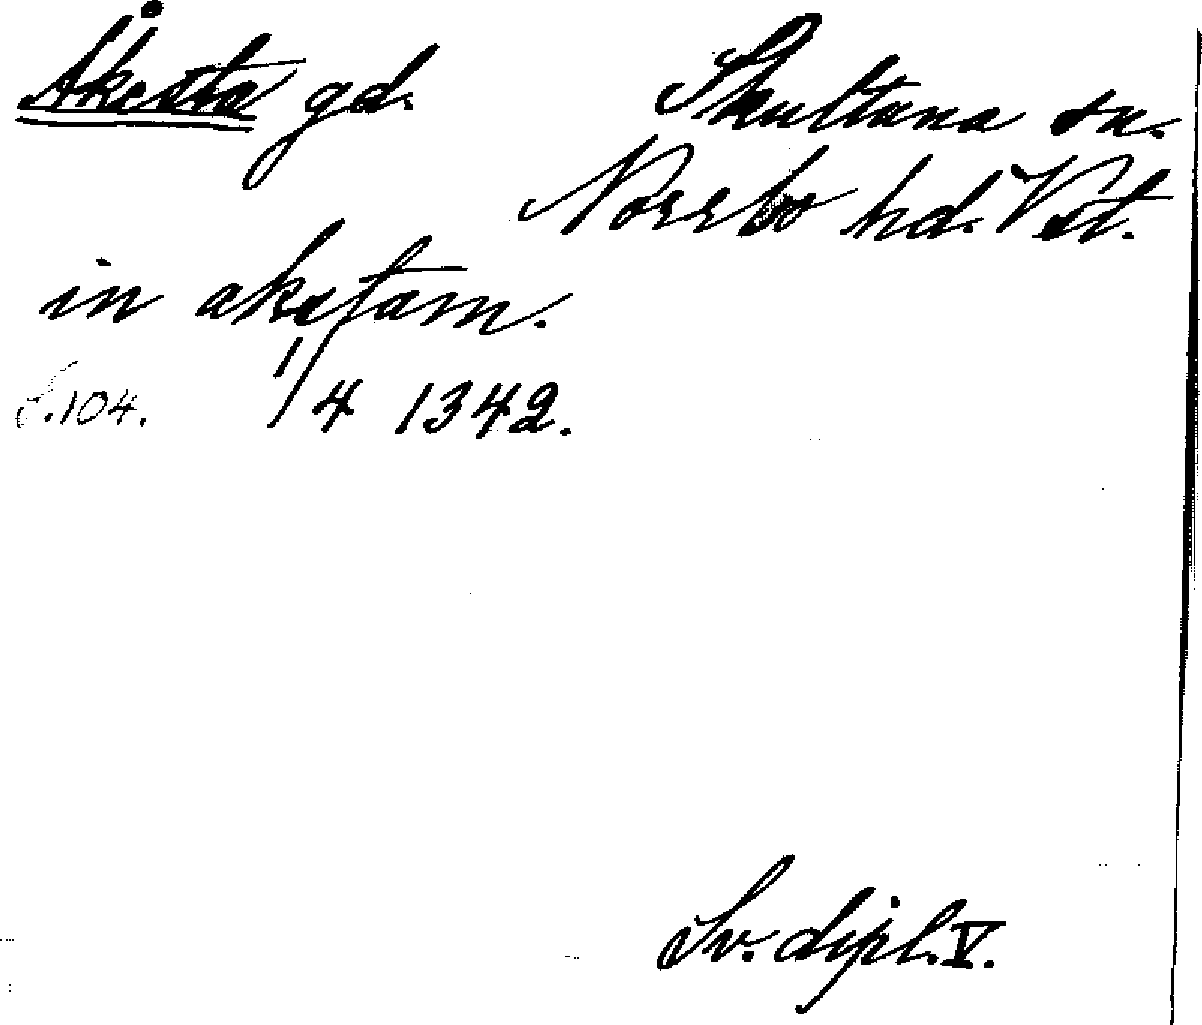 Åkesta gd.
Skultuna sn.
Norrbo hd. Vst.
in akestam.
S. 104. 1/4 1342.
Sv. dipl. V.